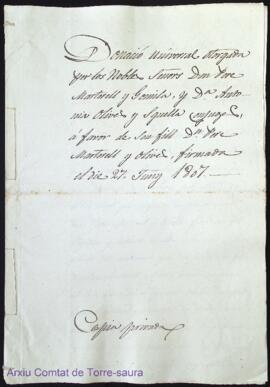 Donació universal otorgada
per los Nobles Señors Don Pere
Martorell y Gomila, y Dª. Anto-
nia Olives y Squella conjuges,
á favor de son fill Dⁿ. Pere
Martorell y Olives, firmada
el die 27. Juny 1807.
Copia privada
Arxiu Comtat de Torre-saura